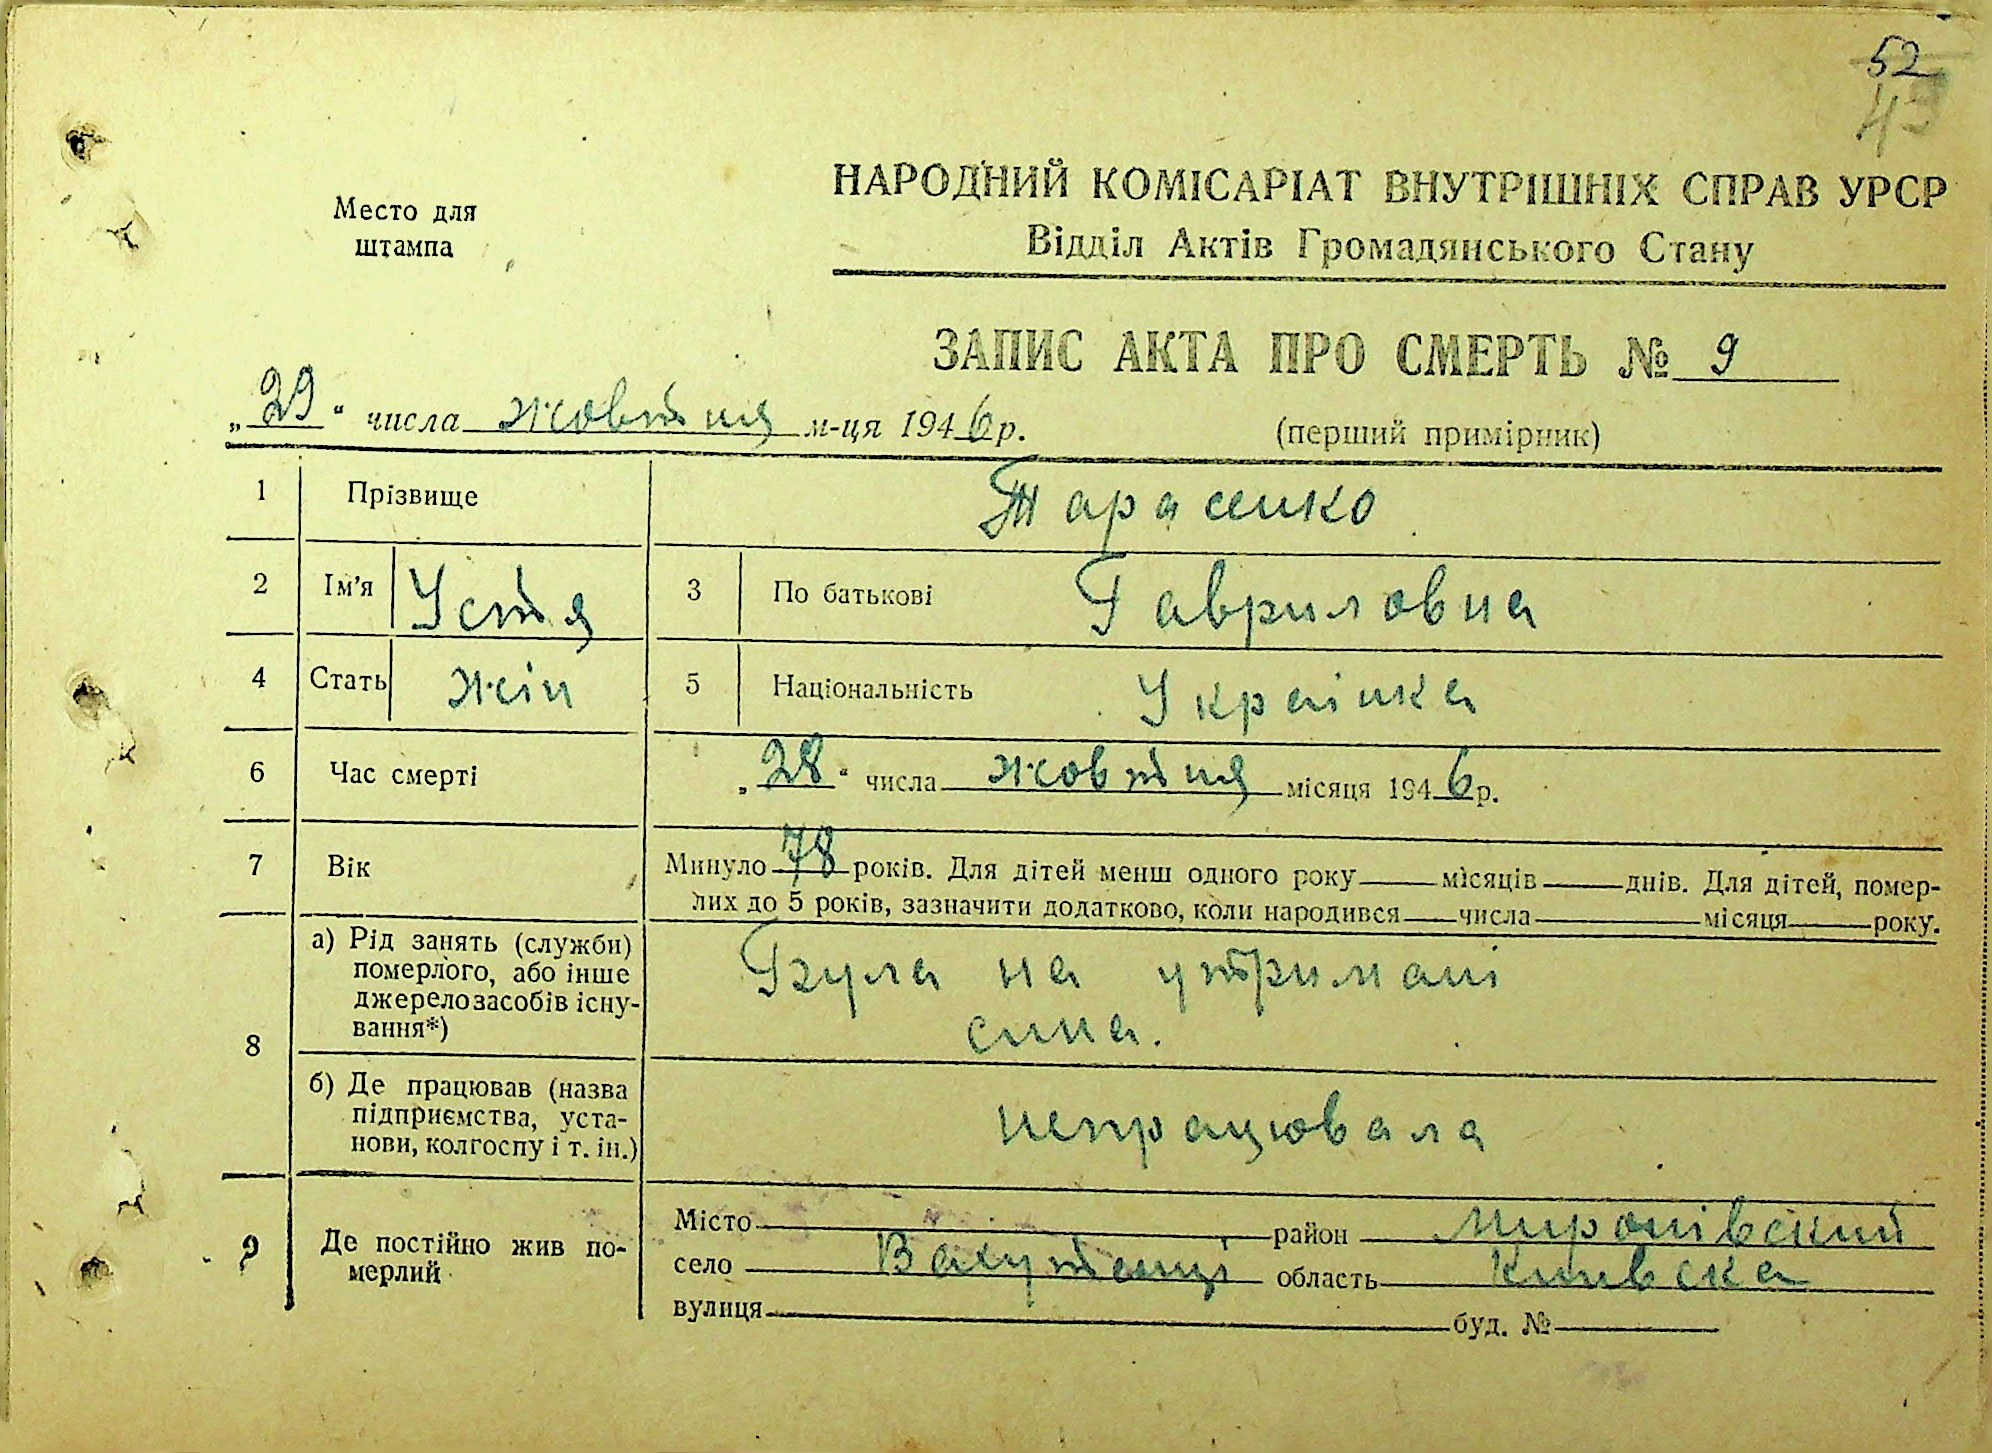 52
43
Место для
штампа
НАРОДНИЙ КОМІСАРІАТ ВНУТРІШНІХ СПРАВ УРСР
Відділ Актів Громадянського Стану
ЗАПИС АКТА ПРО СМЕРТЬ № 9
„29“ числа жовтня м-ця 1946р.
(перший примірник)
1 Прізвище Тарасенко
2 Ім'я Устя 3 По батькові Гавриловна
4 Стать жін 5 Національність Українка
6 Час смерті „28“ числа жовтня місяця 1946р.
7 Вік Минуло 78 років. Для дітей менш одного року місяців днів. Для дітей, помер-
лих до 5 років, зазначити додатково, коли народився числа місяця року.
8
а) Рід занять (служби)
померлого, або інше
джерело засобів існу-
вання*)
Була на утримані
сина.
б) Де працював (назва
підприємства, уста-
нови, колгоспу і т. ін.)
непрацювала
9 Де постійно жив по-
мерлий
Місто район Миронівский
село Вахутенці область Киівска
вулиця буд. №